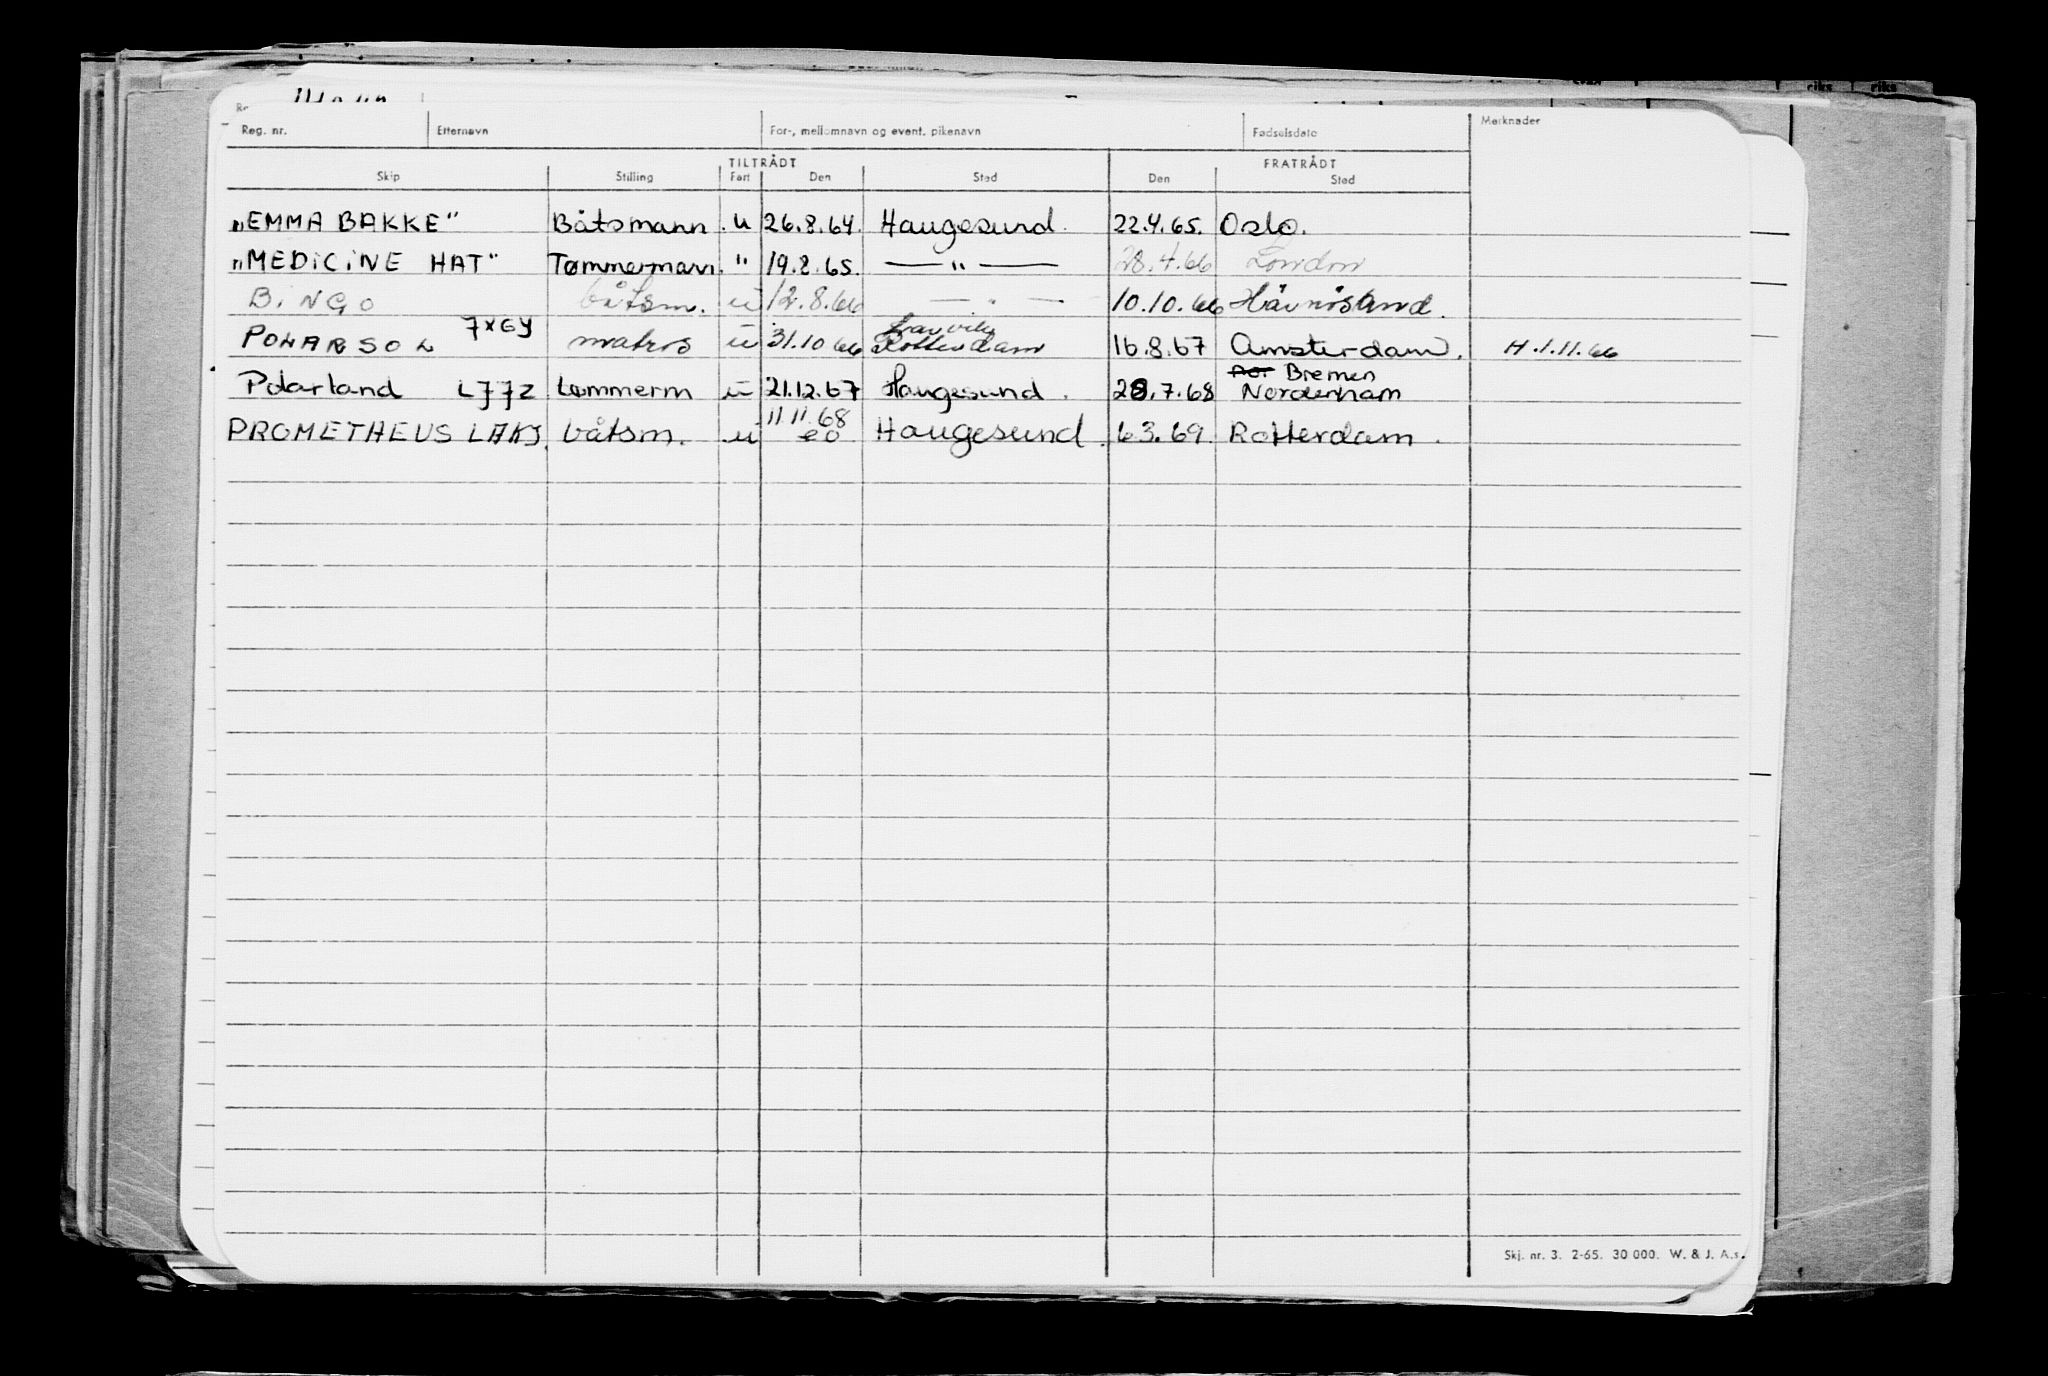 Reg. nr. Etternavn For-, mellomnavn og event. pikenavn Fødselsdato Merknader
TILTRÅDT FRATRÅDT
Skip Stilling Fart Den Sted Den Sted
„EMMA BAKKE" Båtsmann. u 26.8.64. Haugesund. 22.4.65. Oslo.
„MEDICINE HAT" Tømmermann. " 19.8.65. — " — 28.4.66 London
BINGO båtsm. u 12.8.66 — " — 10.10.66
7XGY
POLARSOL matros u 31.10 66 Rotterdam 16.8.67 Amsterdam. H.1.11.66
Bremen
Polarland LJJZ tømmerm u 21.12.67 Haugesund. 28.7.68 Nordenham
11 11.68
PROMETHEUS LAKJ. båtsm. u eo Haugesund. 6 3.69 Rotterdam.
Skj. nr. 3. 2-65. 30 000. W. & J. A.s.